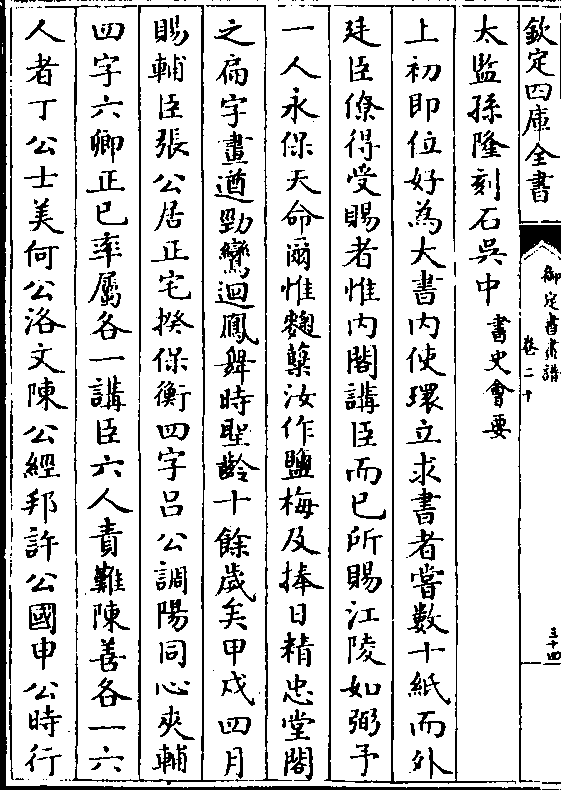 欽定四庫全書
御定書畫譜
卷二十
三十四
太監孫隆刻石吳中書史會要
上初即位好為大書內使環立求書者嘗數十紙而外
廷臣僚得受賜者惟內閣講臣而已所賜江陵如弼予
一人永保天命爾惟麴糵汝作鹽梅及捧日精忠堂閣
之扁字畫遒勁鸞迴鳳舞時聖齡十餘歲矣甲戌四月
賜輔臣張公居正宅揆保衡四字呂公調陽同心夾輔
四字六卿正已率屬各一講臣六人責難陳善各一六
人者丁公士美何公洛文陳公經邦許公國申公時行